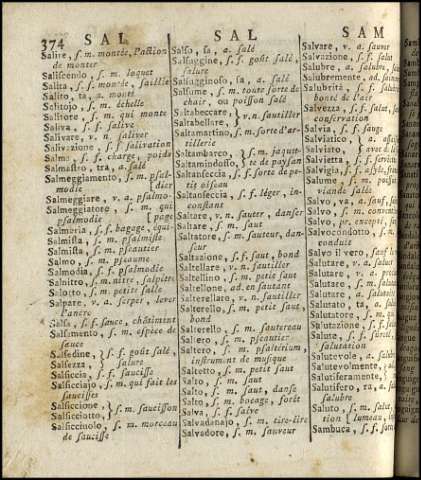 374 SAL SAL SAM
Salire, s. m. montée, l'action
de monter
Saliscendo, s. m. loquet
Salita, s. f. montée, saillie
Salito, ta, a. monté
Salitojo, s. m. échelle
Salitore, s. m. qui monte
Saliva, s. f. salive
Salivare, v. n. saliver
Salivazione, s. f. salivation
Salma, s. f. charge, poids
Salmastro, tra, a. salé
Salmeggiamento, s. m. psal-
modie [dier
Salmeggiare, v. a. psalmo-
Salmeggiatore, s. m. qui
psalmodie [page
Salmeria, s. f. bagage, équi-
Salmista, s. m. psalmiste
Salmista, s. m. pseautier
Salmo, s. m. pseaume
Salmodia, s. f. psalmodie
Salnitro, s. m. nitre, salpêtre
Salotto, s. m. petite salle
Salpare, v. a. serper, lever
l'ancre
Salsa, s. f. sauce, châtiment
Salsamento, s. m. espèce de
sauce
Salsedine, } s. f. goût salé,
Salsezza, } salure
Salsiccia, s. f. saucisse
Salsicciajo, s. m. qui fait les
saucisses
Salsiccione, } s. m. saucisson
Salsicciotto, }
Salsicciuolo, s. m. morceau
de saucisse
Salso, sa, a. salé
Salsuggine, s. f. goût salé,
salure
Salsugginoso, sa, a. salé
Salsume, s. m. toute sorte de
chair, ou poisson salé
Saltabeccare, } v. n. sautiller
Saltabellare, }
Saltamartino, s. m. sorte d'ar-
tillerie
Saltambarco, } s. m. jaquet-
Saltamindosso, } te de paysan
Saltanseccia, s. f. sorte de pe-
tit oiseau
Saltanseccia, s. f. léger, in-
constant
Saltare, v. n. sauter, danser
Saltare, s. m. saut
Saltatore, s. m. sauteur, dan-
seur
Saltazione, s. f. saut, bond
Saltellare, v. n. sautiller
Saltellino, s. m. petit saut
Saltellone, ad. en sautant
Salterellare, v. n. sautiller
Salterello, s. m. petit saut
bond
Salterello, s. m. sautereau
Saltero, s. m. pseautier
Saltero, s. m. psaltérium,
instrument de musique
Saltetto, s. m. petit saut
Salto, s. m. saut
Salto, s. m. saut, danse
Salto, s. m. bocage, forêt
Salva, s. f. salve
Salvadanajo, s. m. tire-lire
Salvadore, s. m. sauveur
Salvare, v. a. sauver
Salvazione, s. f. salut
Salubre, a. salubre,
Salubremente, ad.
Salubrità, s. f.
bonté de l'air
Salvezza, s. f. salut,
conservation
Salvia, s. f. sauge
Salviatico, } a.
Salviato, } avec de
Salvietta, s. f.
Salvigia, s. f.
Salume, s. m.
viande salée
Salvo, va, a. sauf,
Salvo, s. m.
Salvo, pr. excepté,
Salvocondotto, s.
conduit
Salvo il vero, sauf
Salutare, v. a. saluer
Salutare, v. a.
Salutare, s. m.
Salutare, a.
Salutato, ta, a.
Salutatore, s. m.
Salutazione, s. f.
Salute, s. f. salut
salutation
Salutevole, a.
Salutevolmente,
Salutiferamente,
Salutifero, ra, a.
salubre
Saluto, s. m. salut,
tion [
Sambuca, s. f.